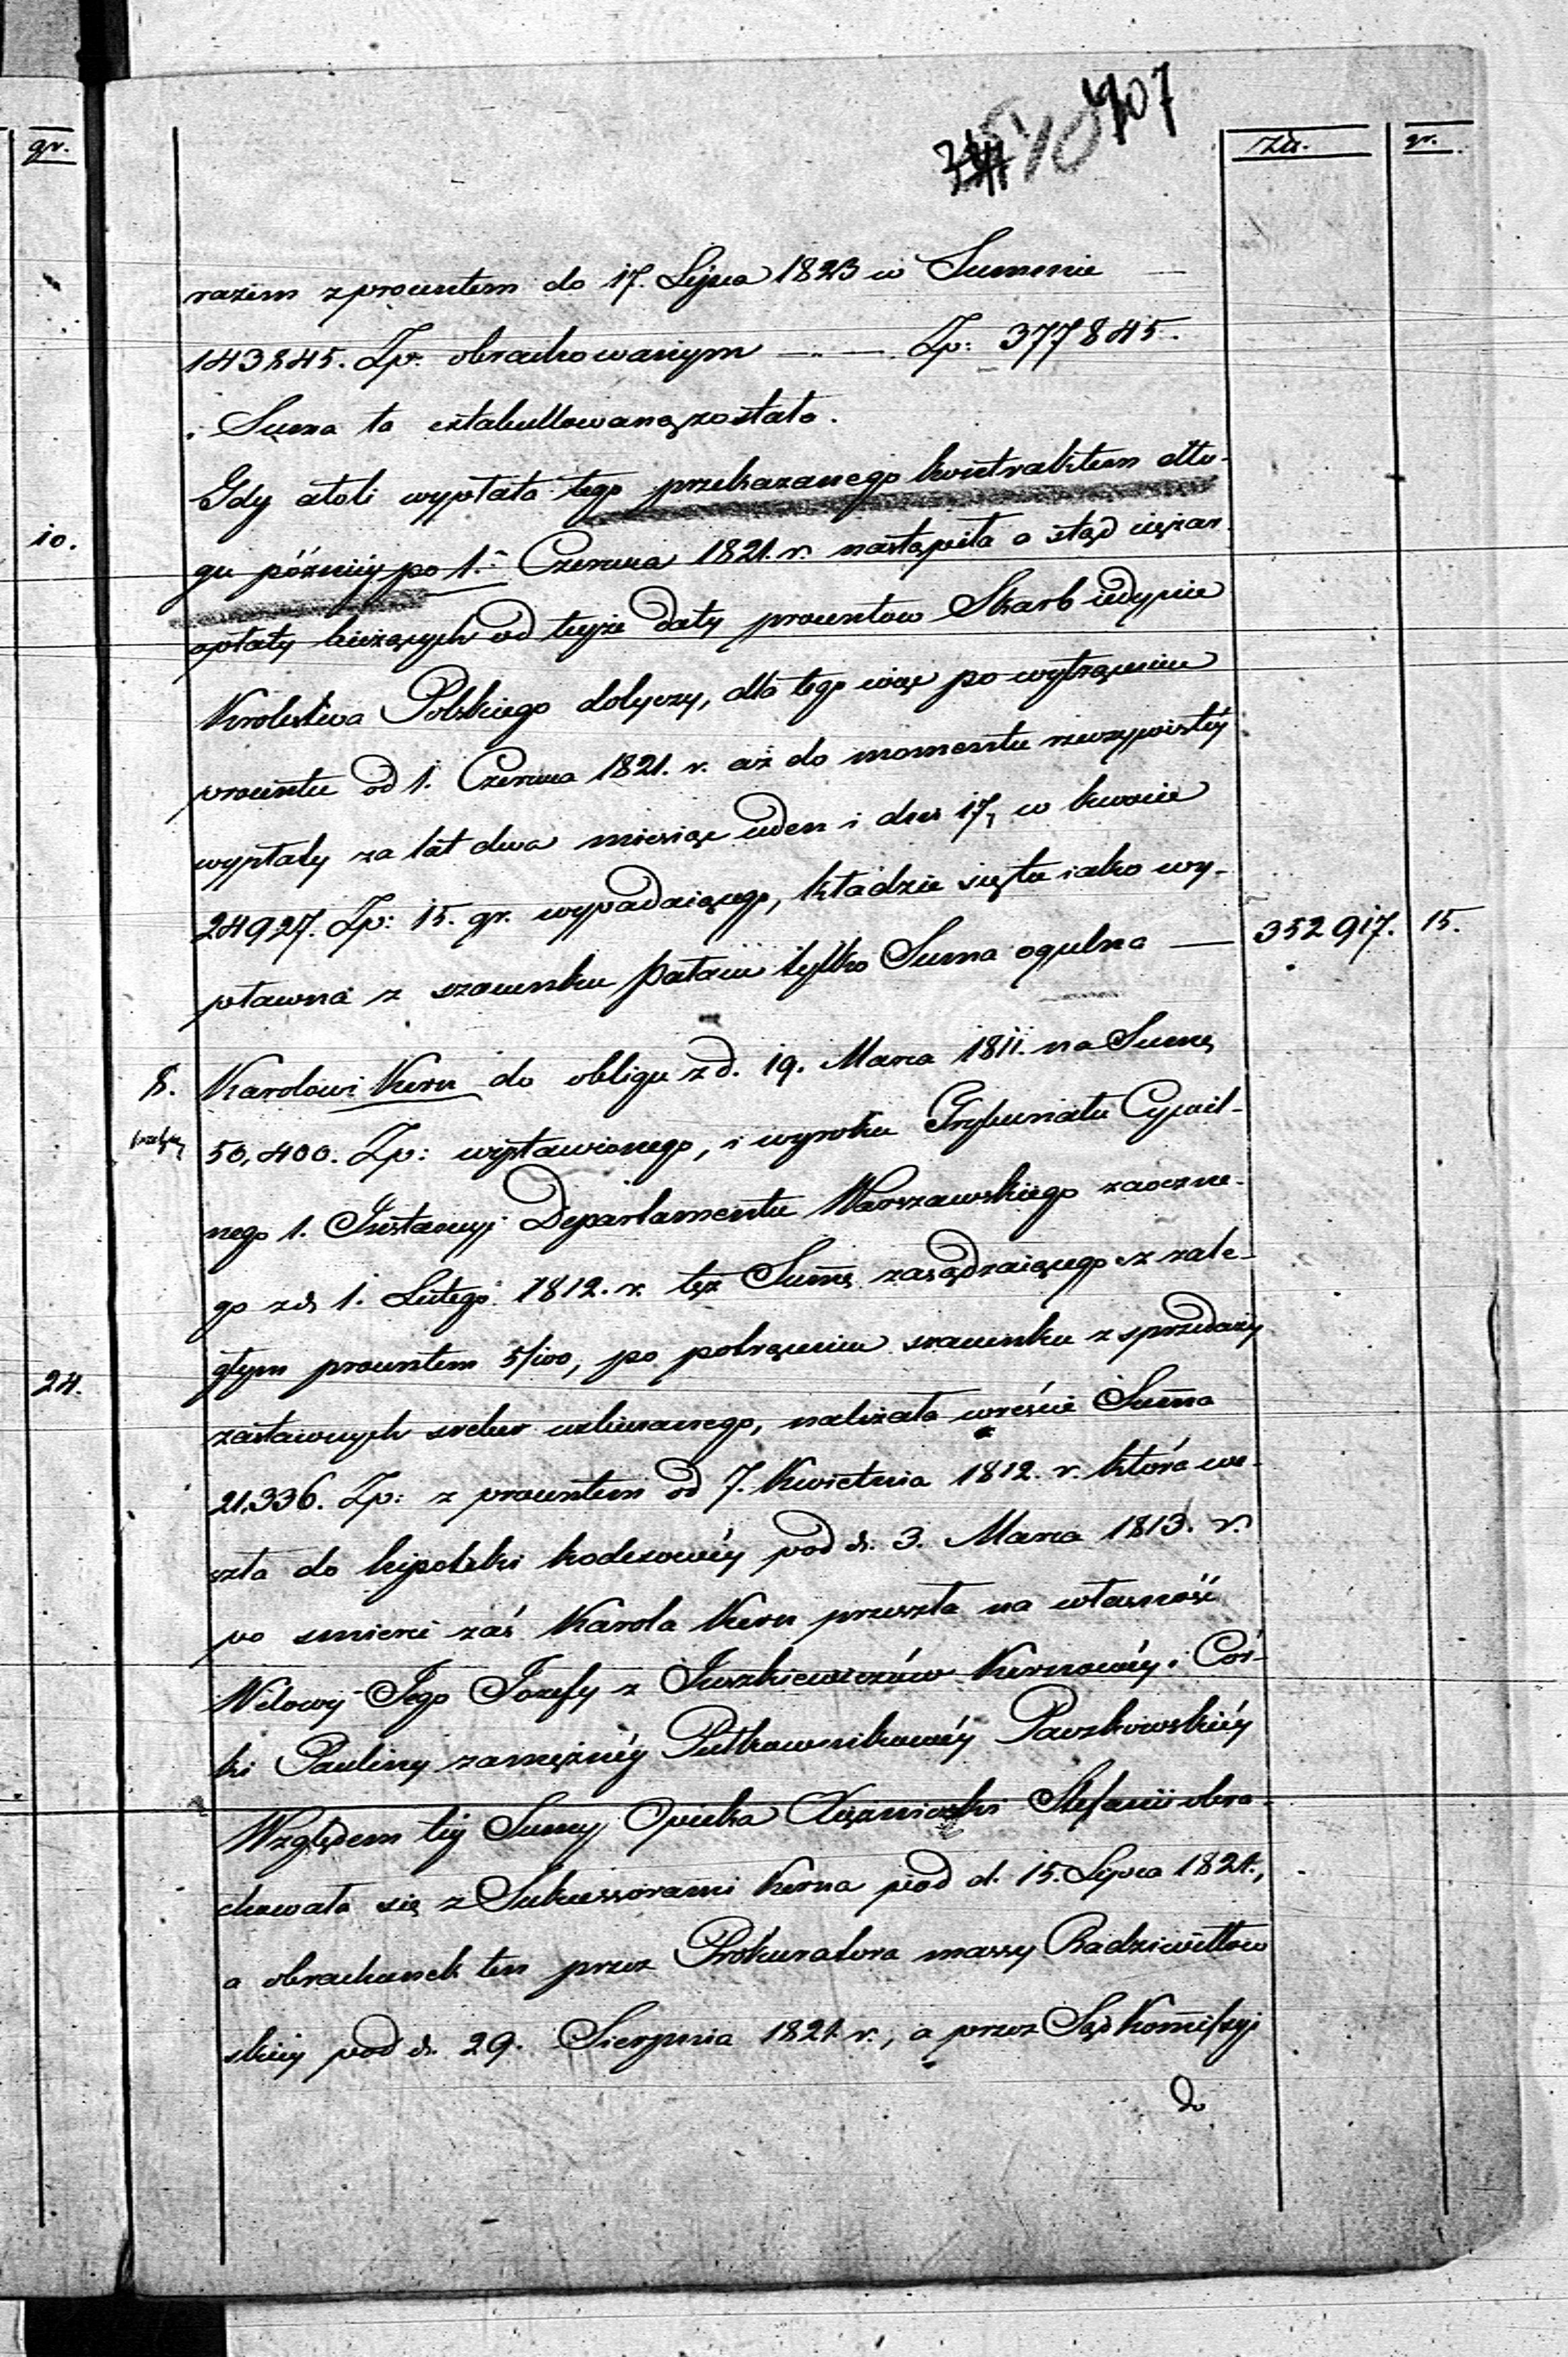 gr.
10.
24.
10 407
Zł.
gr.
razem z procentem do 17. Lipca 1823 w Summie
143845. Zp. obrachowanym — „ — Zp: 377845.
i Suma ta extabullowaną została.
Gdy atoli wypłata tego przekazanego kontraktem dłu-
gu późniéy po 1. Czerwca 1821. r. nastąpiła a stąd ciężar
opłaty bieżących od teyże daty procentow Skarb iedynie
Krolestwa Polskiego dotyczy, dla tego więc po wytrąceniu
procentu od 1. Czerwca 1821. r. aż do momentu rzeczywistéy
wypłaty za lat dwa miesiąc ieden i dni 17, w kwocie
24927. Zp: 15. gr. wypadaiącego, kładzie się tu iako wy-
pławna z szacunku Pałacu tylko Suma ogulna — 352917. 15.
8. Karolowi Kern do obligu z d. 19. Marca 1811. na Sumę
50,400. Zp: wystawionego, i wyroku Trybunału Cywil-
nego 1. Instancyi Departamentu Warszawskiego zaoczne-
go z d. 1. Lutego 1812. r. tęż Sumę zasądzaiącego z zale-
głym procentem 5/100, po potrąceniu szacunku z sprzedaży
zastawnych sreber uzbieranego, należała wreście Suma
21,336. Zp: z procentem od 7. Kwietnia 1812. r. która we-
szła do hipoteki kodexowéy pod d. 3. Marca 1813. r.
po smierci zaś Karola Kern przeszła na własność
Wdowy Jego Jozefy z Juszkiewiczów Kernowéy i Cór-
ki Pauliny zamężnéy Pułkownikowéy Paszkowskiéy
Względem téy Sumy Opieka Xiężniczki Stefanii obra-
chowała się z Sukcessorami Kerna pod d. 15. Lipca 1821.,
a obrachunek ten przez Prokuratora massy Radziwiłłow
skiéy pod d. 29. Sierpnia 1821. r., a przez Sąd Komissyi
do